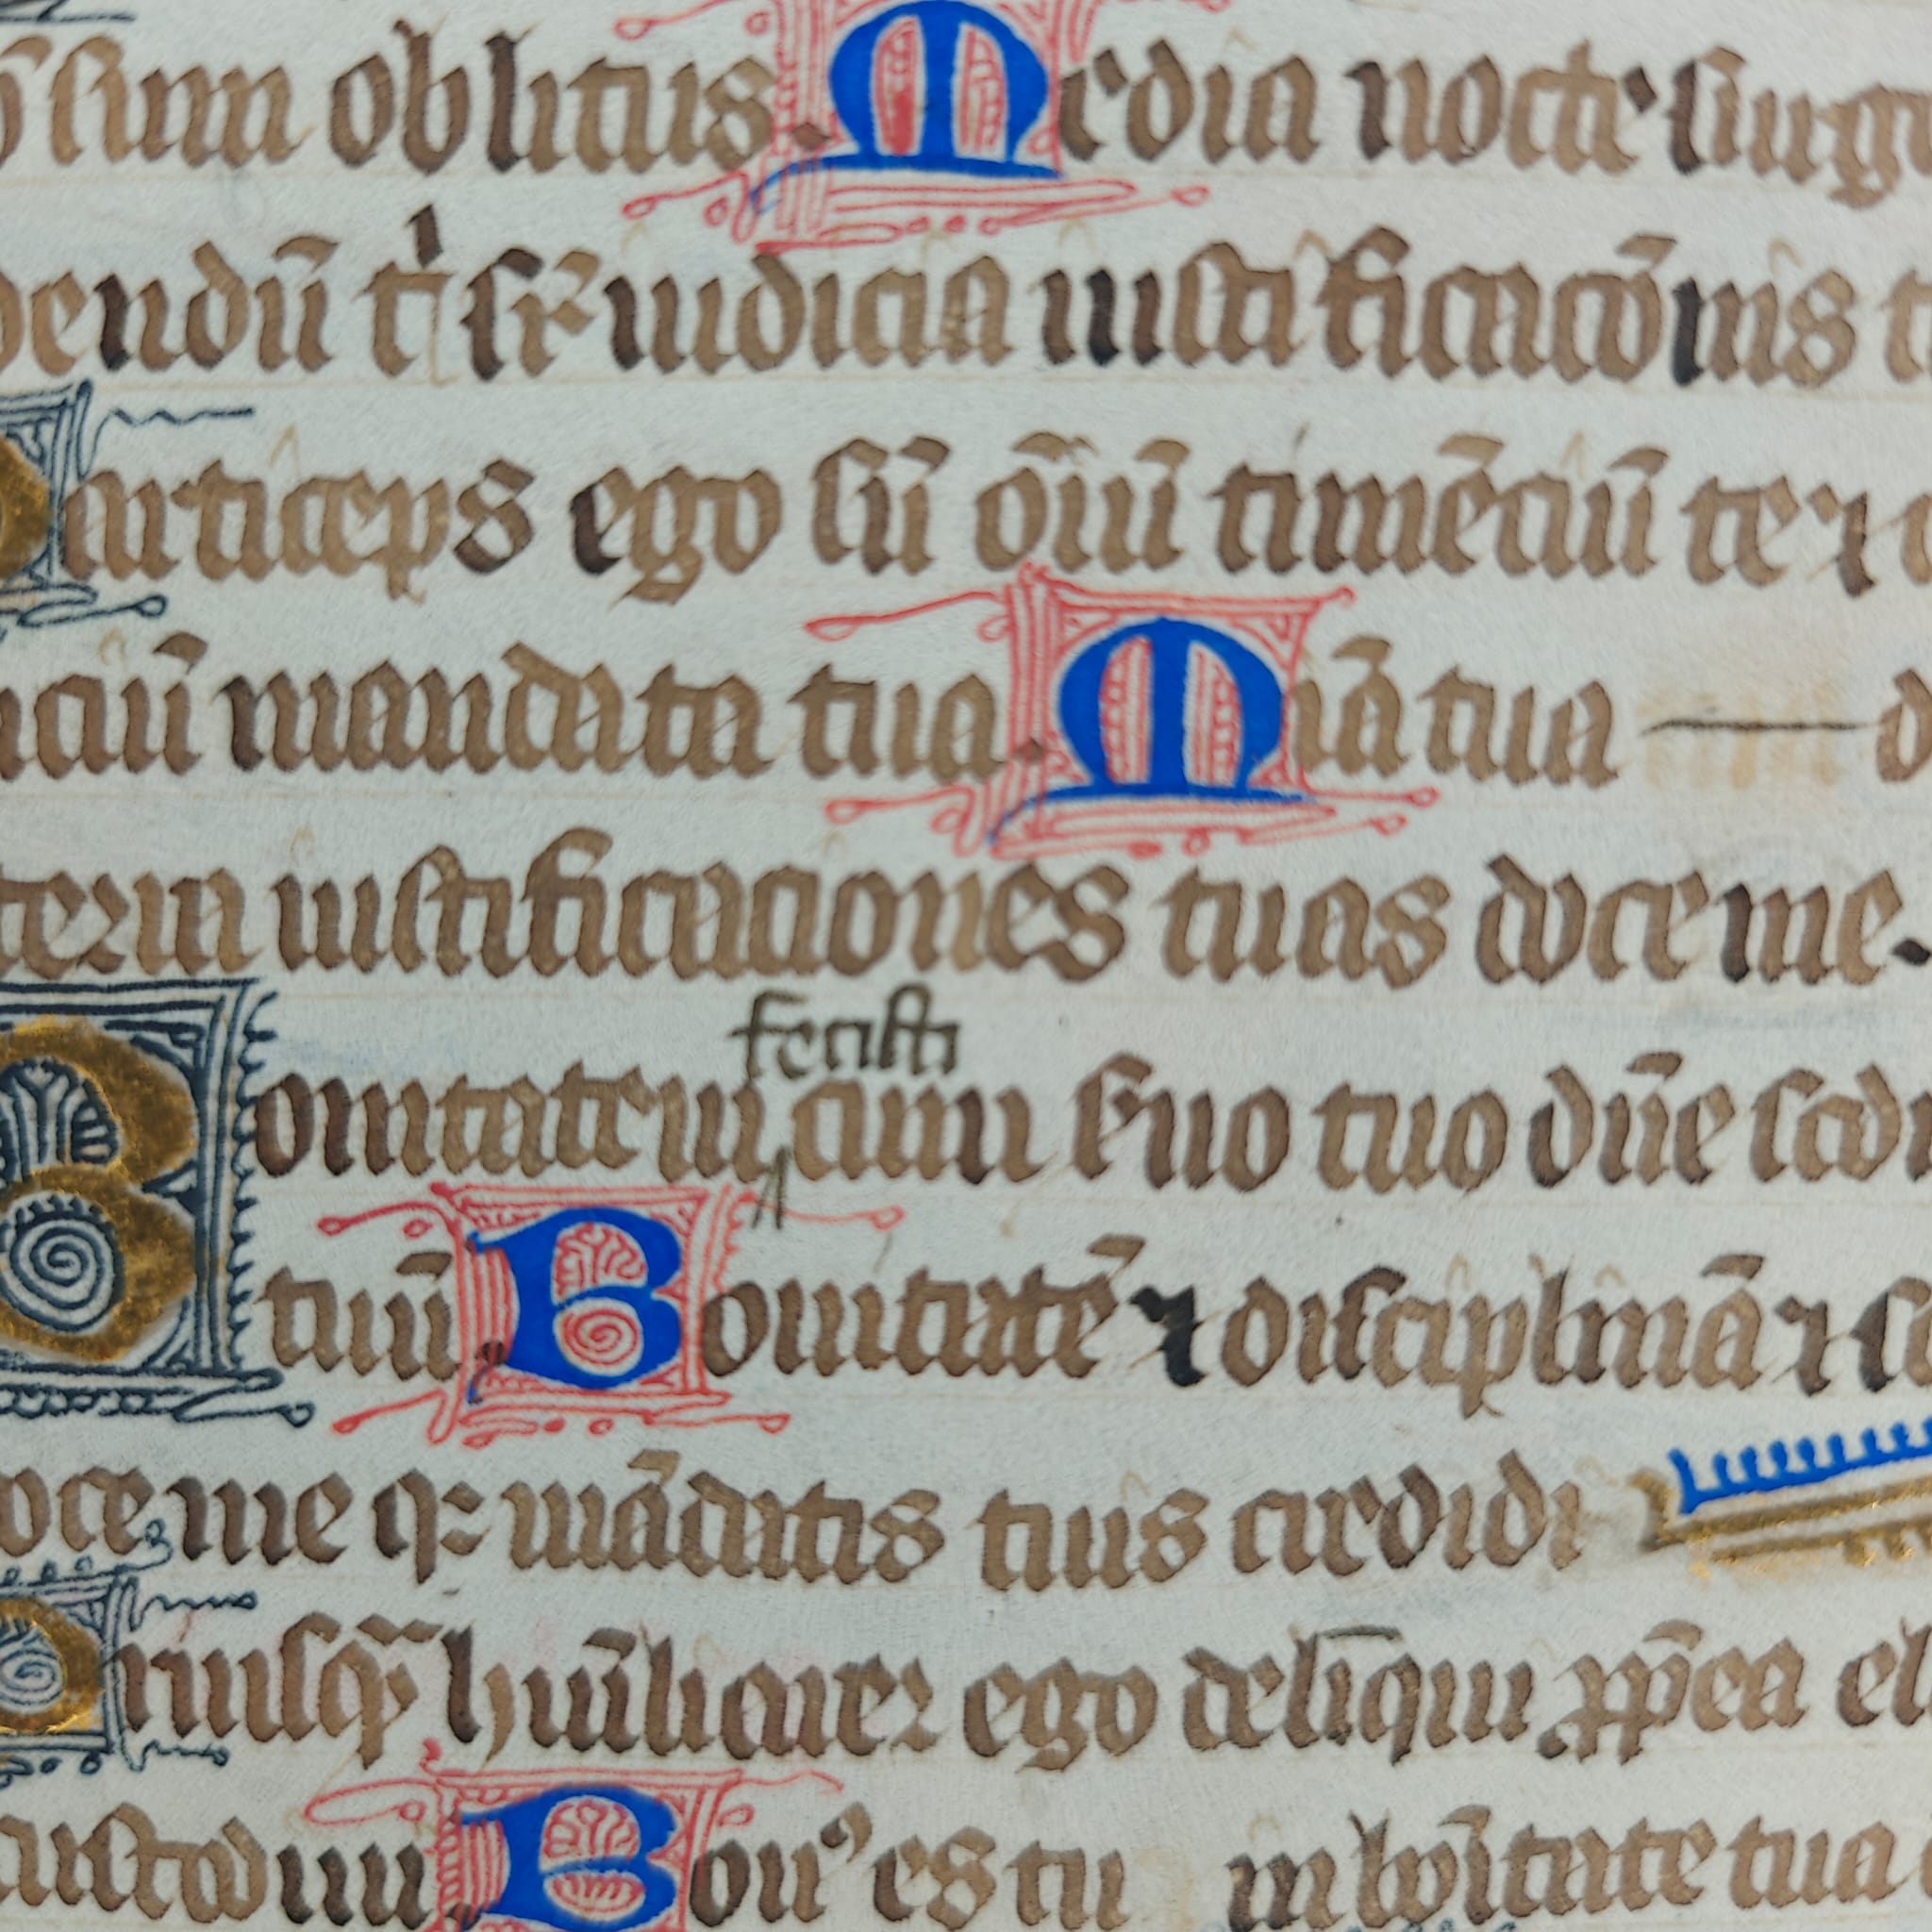 sum oblitus. Media nocte surge
dendū tⁱ sr̄ iudicia iustificacōnis t
articeps ego sū oīu timēciū te ⁊ c
nciū mandata tua. Mīa tua — d
terra iustificaciones tuas doce me.
fecisti
Bonitatem cum s̄uo tuo dn̄e scd̄
tuū. Bonitatē ⁊ disciplinā ⁊ sc
oce me qꝫ mādatis tuis credidi
riusqᵃ hūiliarer ego deliqui ꝓpea el
custodiui. Bonꝰ es tu in boītate tua